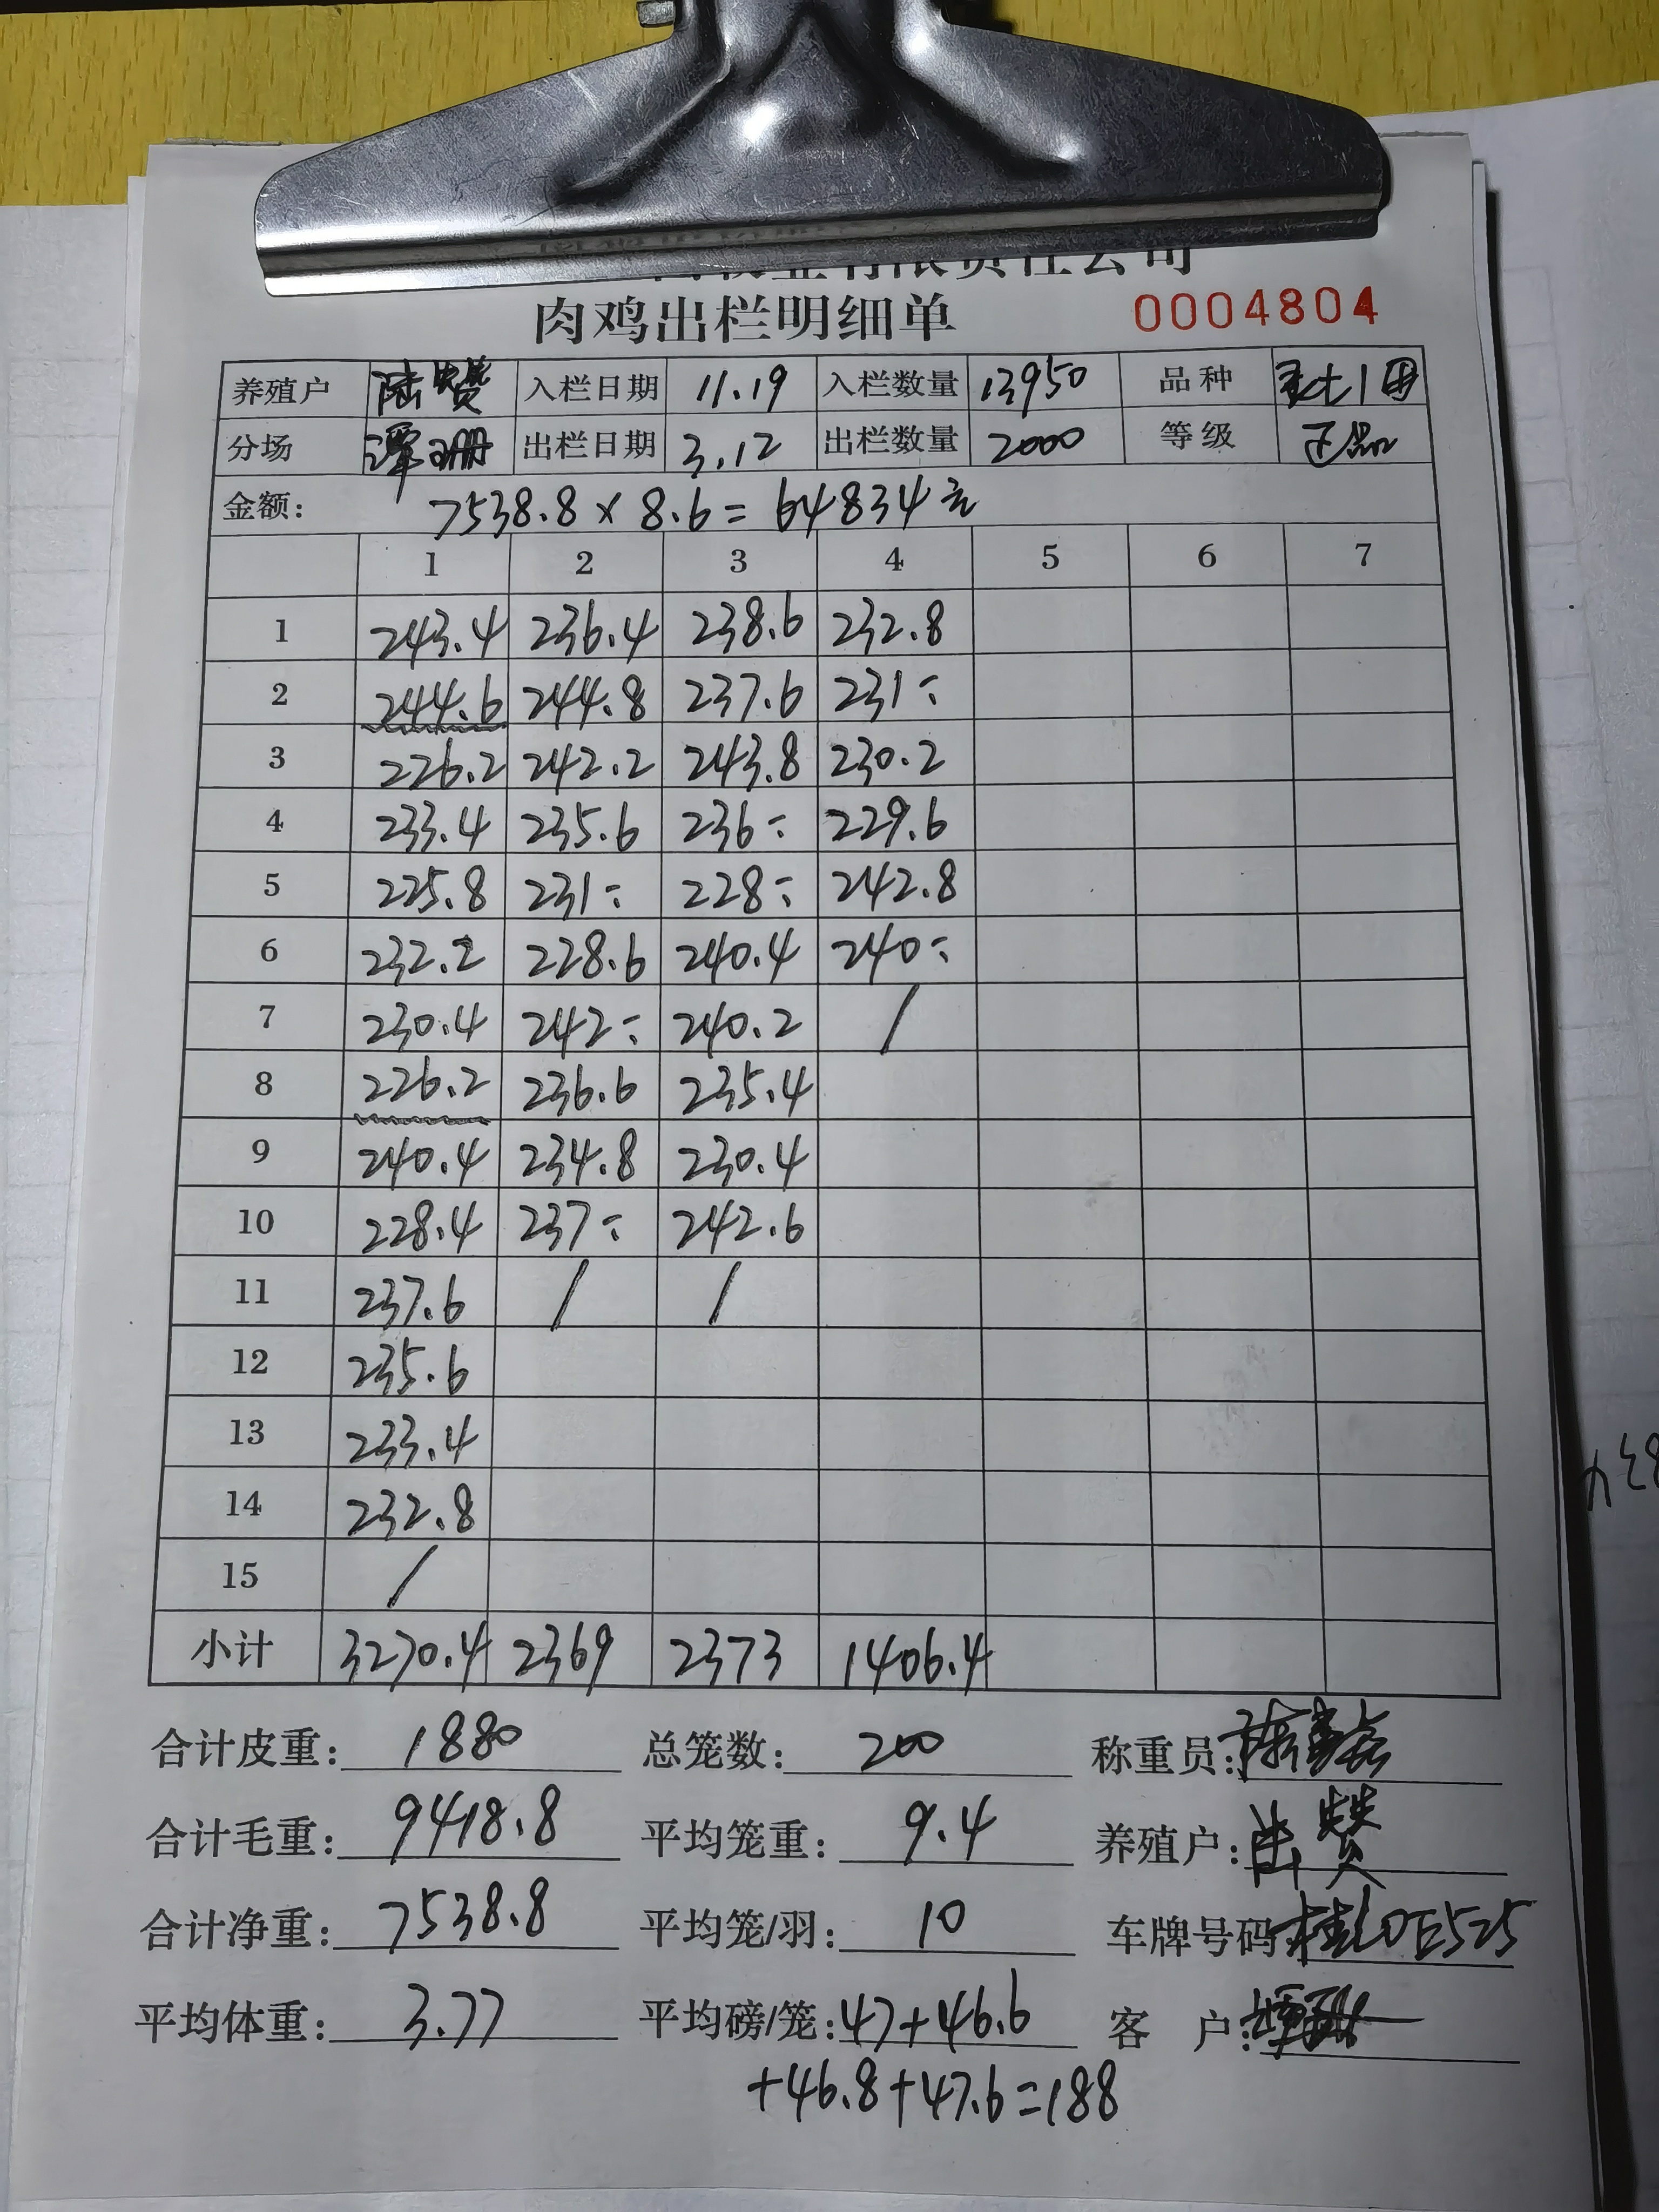 有限责任公司
肉鸡出栏明细单 0004804
养殖户 陆赞 入栏日期 11.19 入栏数量 13950 品种
分场 出栏日期 3.12 出栏数量 2000 等级 正品
金额: 7538.8 × 8.6 = 64834元
1 2 3 4 5 6 7
1 243.4 236.4 238.6 232.8
2 244.6 244.8 237.6 231:
3 226.2 242.2 243.8 230.2
4 233.4 235.6 236: 229.6
5 225.8 231: 228: 242.8
6 232.2 228.6 240.4 240:
7 230.4 242: 240.2 /
8 226.2 236.6 235.4
9 240.4 234.8 230.4
10 228.4 237: 242.6
11 237.6 / /
12 235.6
13 233.4
14 232.8
15 /
小计 3270.4 2369 2373 1406.4
合计皮重: 1880 总笼数: 200 称重员:
合计毛重: 9418.8 平均笼重: 9.4 养殖户: 陆赞
合计净重: 7538.8 平均笼/羽: 10 车牌号码
平均体重: 3.77 平均磅/笼: 47+46.6 客 户:
+46.8+47.6=188